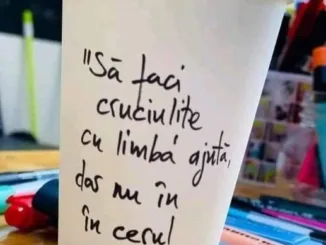 "Să faci
cruciulițe
cu limbă ajută,
dar nu în
în cerul